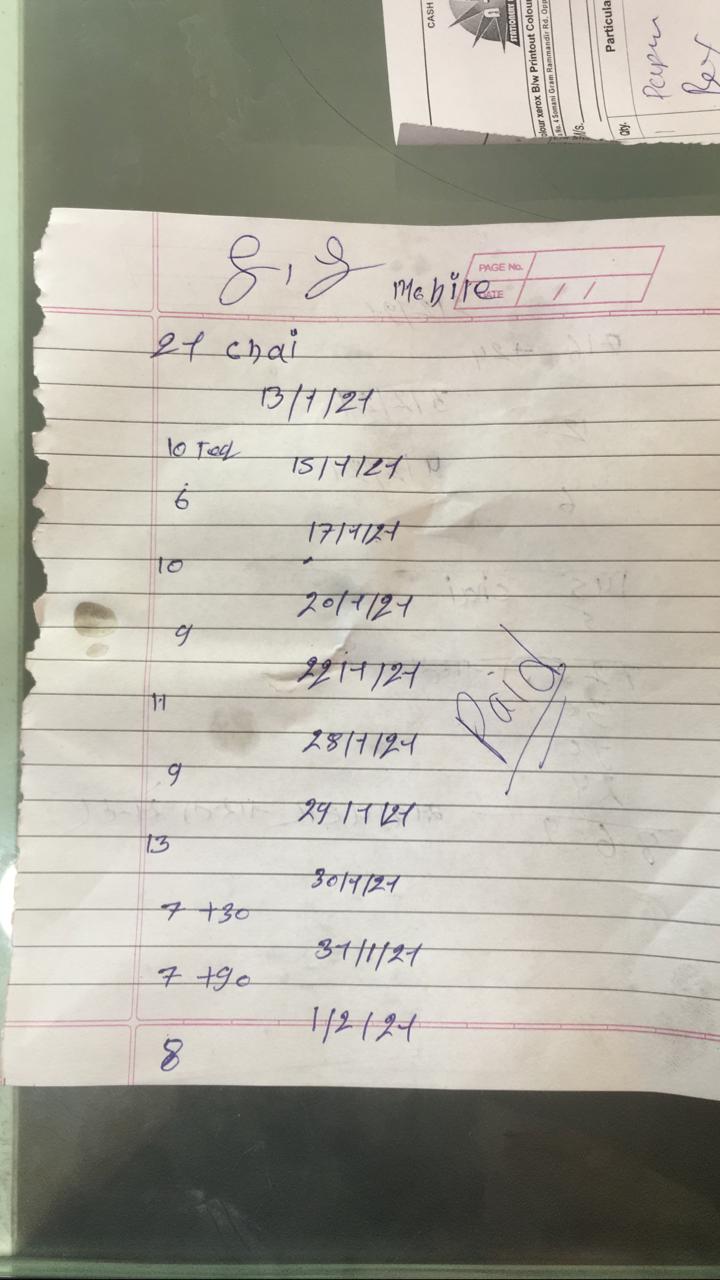 CASH
STATIONERY
olour xerox B/w Printout Colou
No. 4 Somani Gram Rammandir Rd. Opp
M/s.
Qty. Particula
1
g, g Mobile
PAGE No.
DATE / /
21 chai
13/1/21
10
15/1/21
6
17/1/21
10
20/1/21
9
22/1/21
11
28/1/21
9
29/1/21
13
30/1/21
7 +30
31/1/21
7 +90
1/2/21
8
Paid